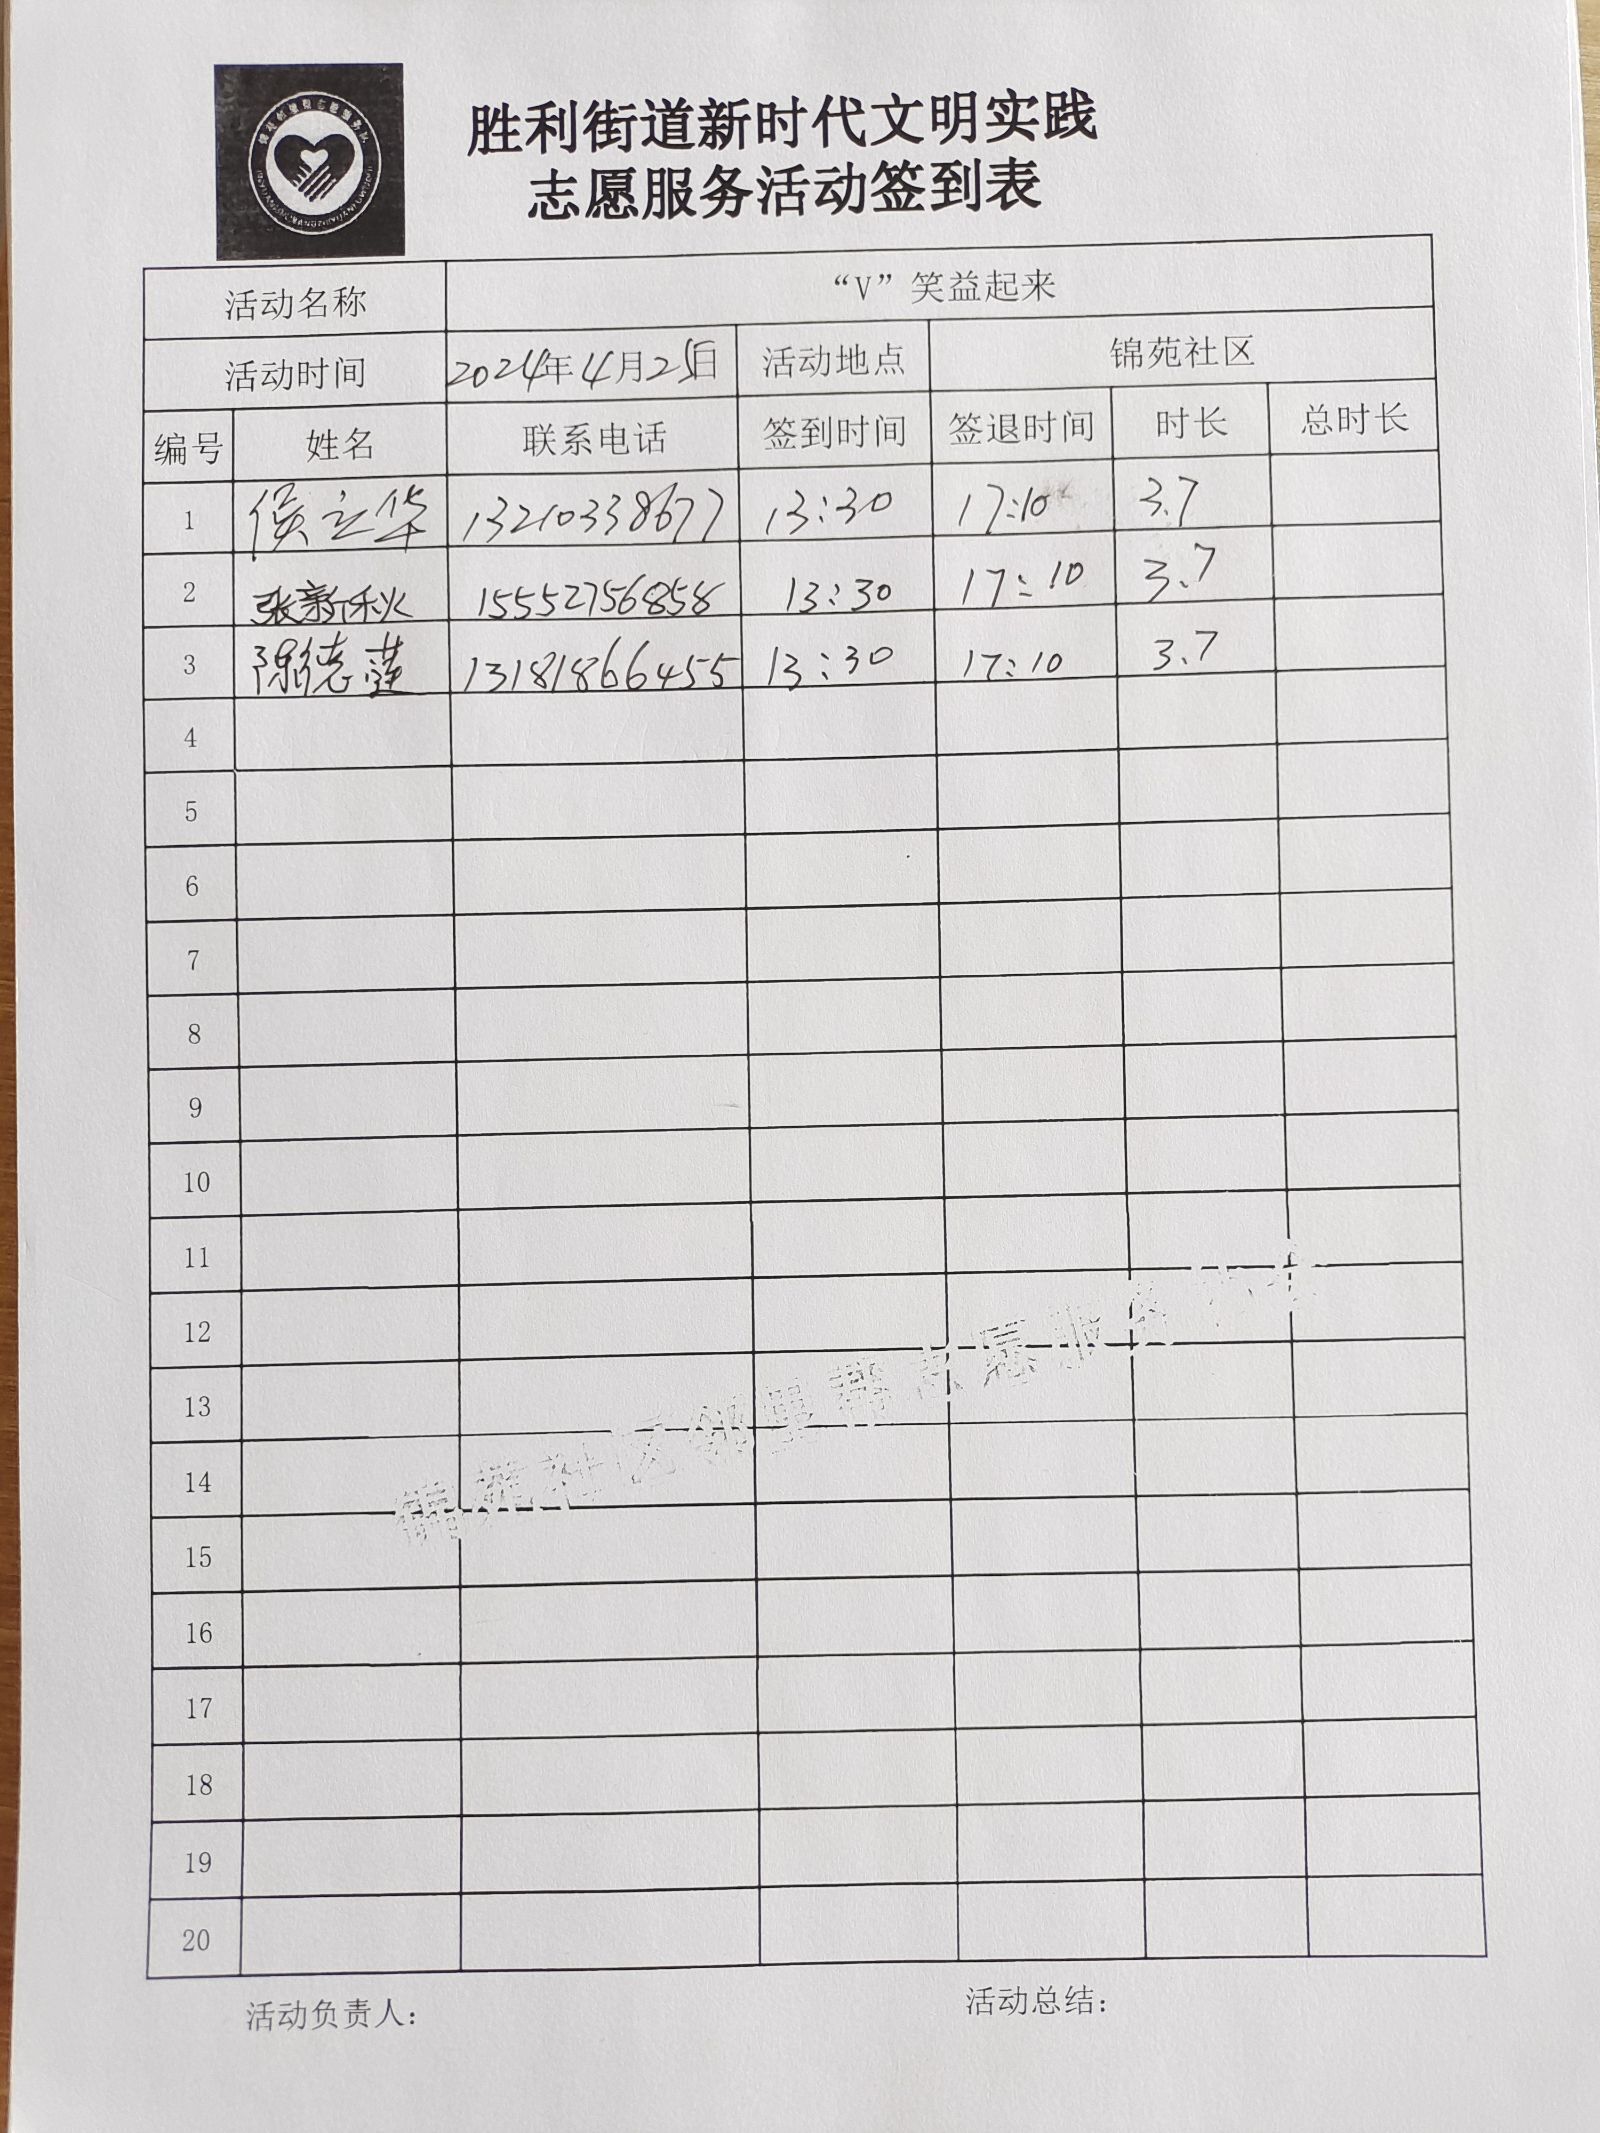 胜利街道新时代文明实践
志愿服务活动签到表
活动名称 “V”笑益起来
活动时间 2024年4月25日 活动地点 锦苑社区
编号 姓名 联系电话 签到时间 签退时间 时长 总时长
1 侯立华 13210338677 13:30 17:10 3.7
2 张新秋 15552756858 13:30 17:10 3.7
3 陈德莲 13181866455 13:30 17:10 3.7
4
5
6
7
8
9
10
11
12
13
14
15
16
17
18
19
20
锦苑社区邻里帮志愿服务
活动负责人: 活动总结: